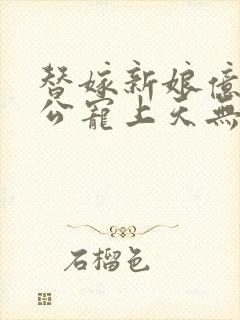 替嫁新娘億
公寵上天無
石榴色